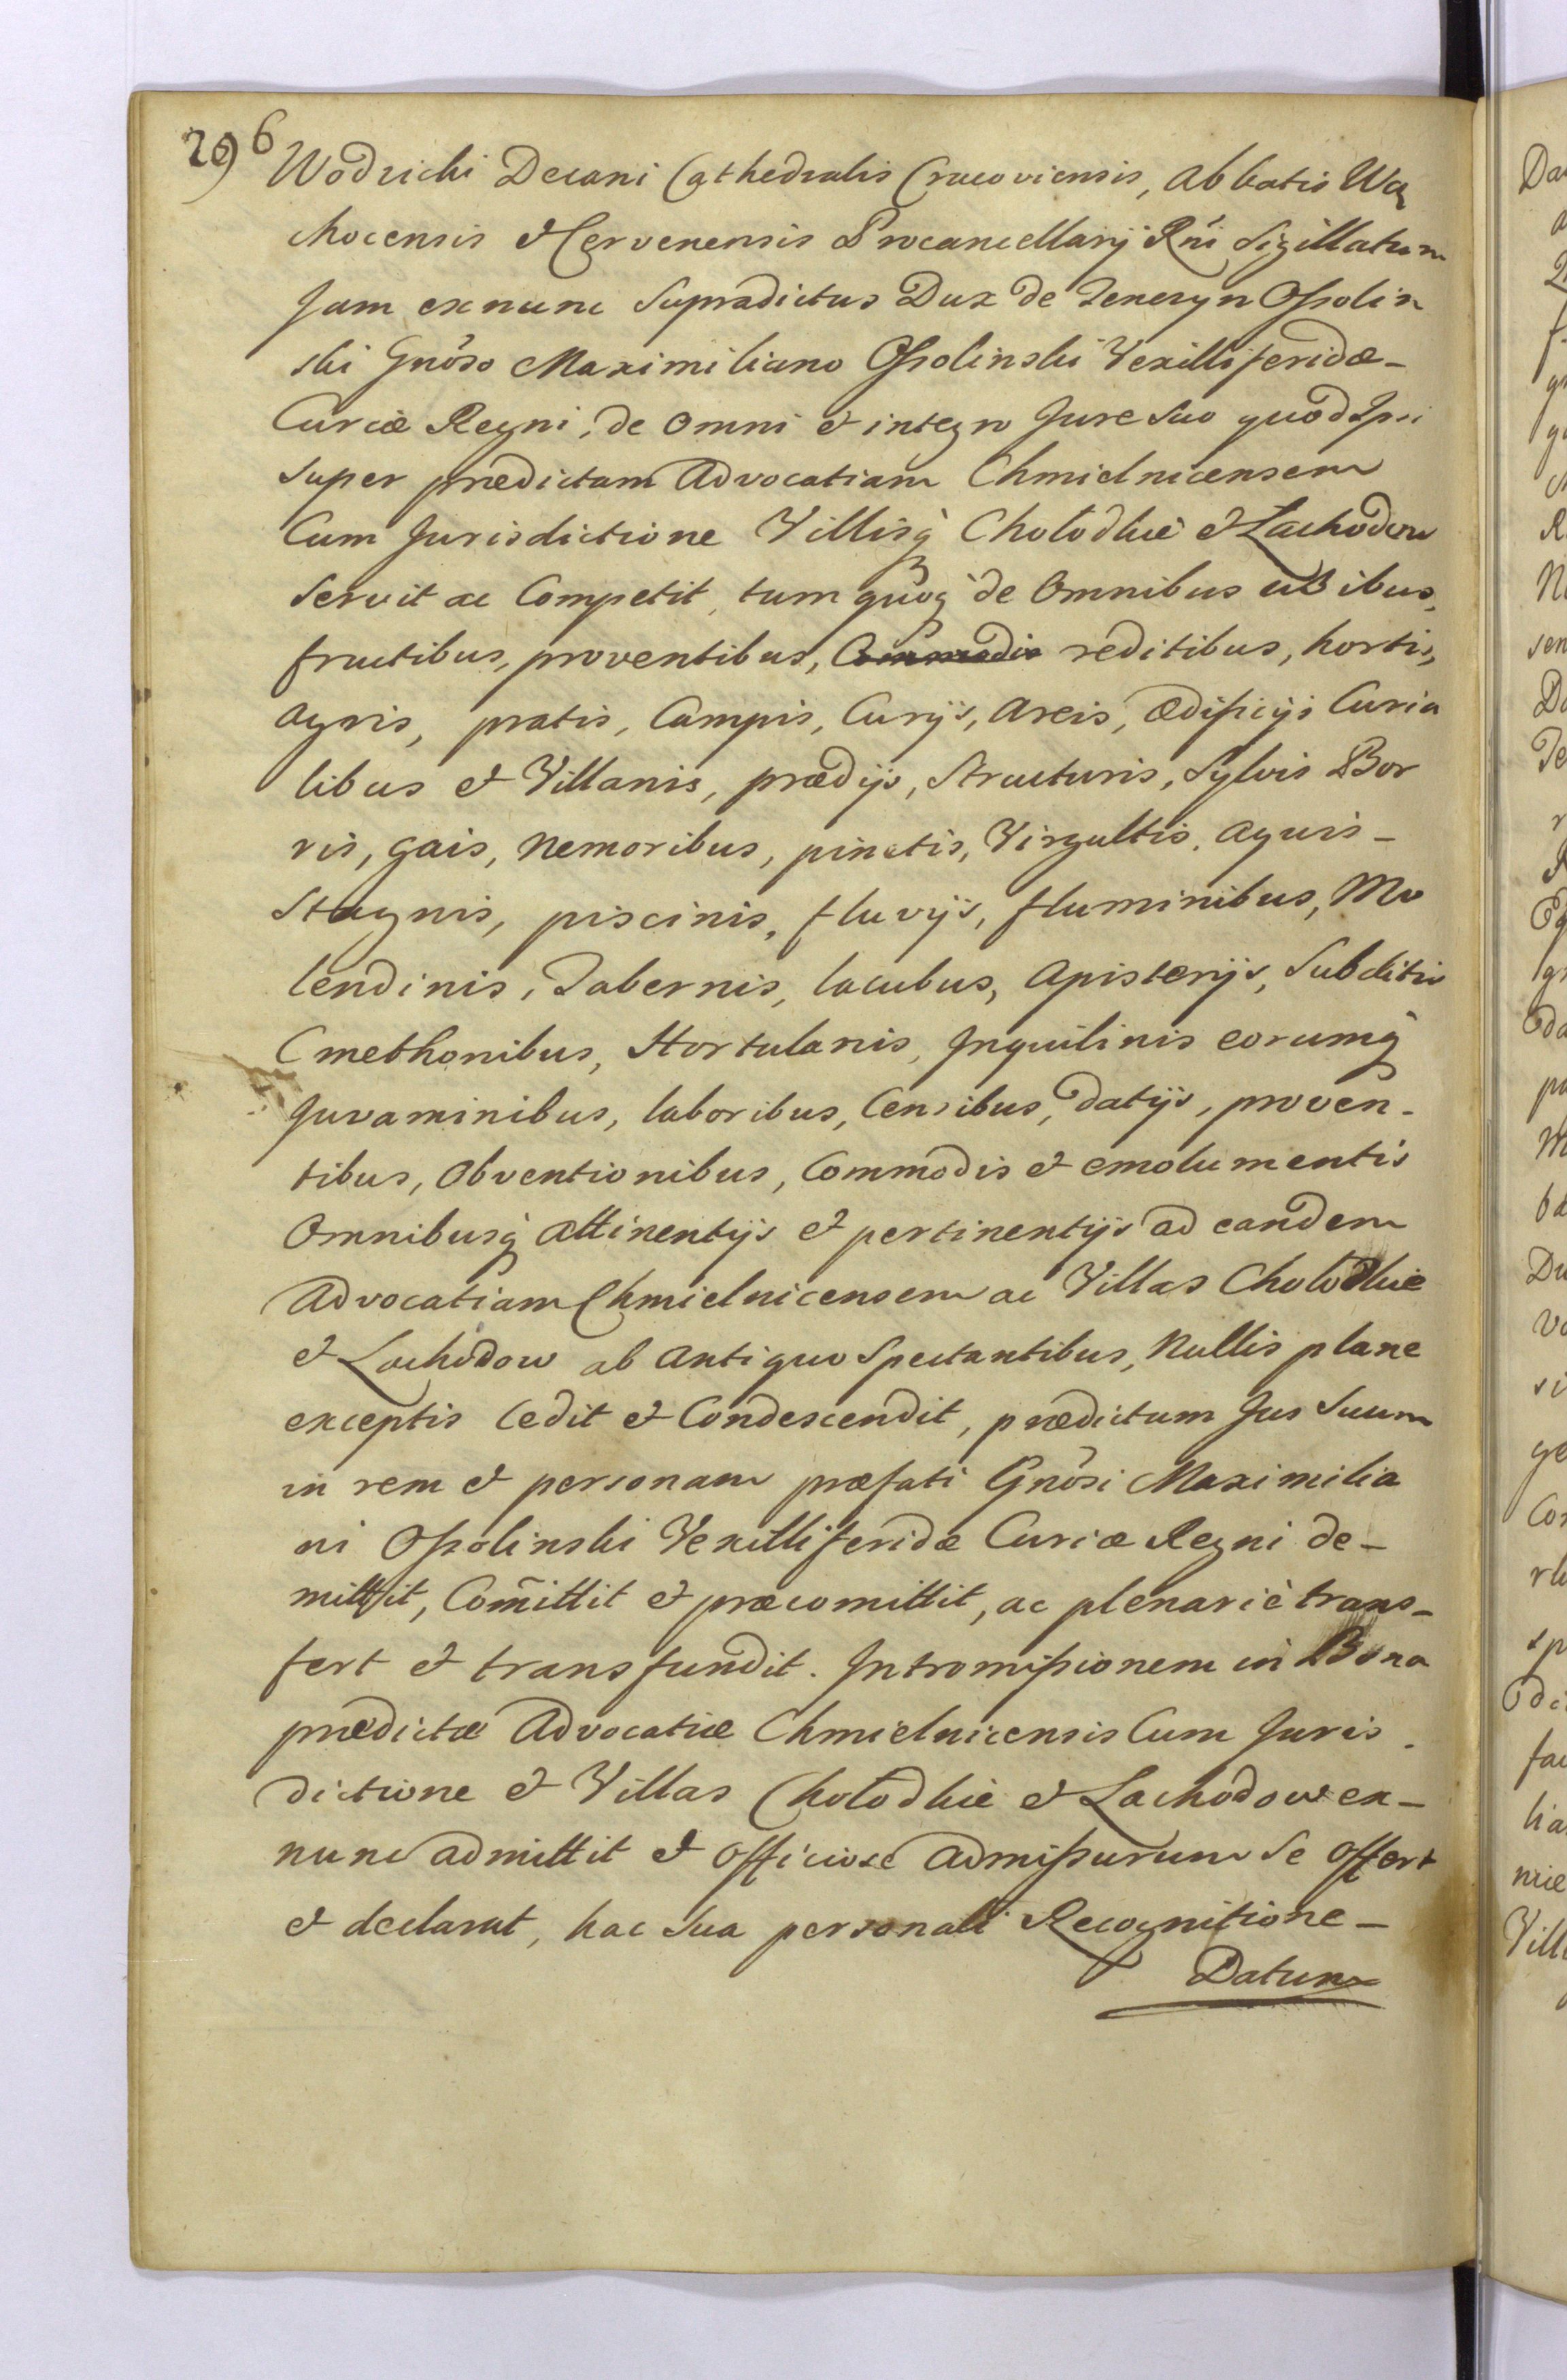 296
Wodzicki Decani Cathedralis Cracoviensis, Abbatis Wą
chocensis et Cervenensis Procancellarij Rñi Sigillatum
Jam ex nunc Supradictus Dux de Tenczyn Ossolin
ski Gnõso Maximiliano Ossolinski Vexilliferidæ-
Curiæ Regni, de Omni et integro Jure Suo quod Ipsi
Super prædictam Advocatiam Chmielnicensem
Cum Jurisdictione Villisq̃ Chołodkie et Lachodow
Servit ac Competit, tum quoq̃ de Omnibus usibus,
fructibus, proventibus, Commodis reditibus, hortis,
Agris, pratis, Campis, Curijs, Areis, Ædificijs Curia
libus et Villanis, prædijs, Structuris, Sylvis Bor
ris, gais, Nemoribus, pinetis, Virgultis, Aquis-
Stagnis, piscinis, fluvijs, fluminibus, Mo
lendinis, Tabernis, lacubus, Apisterijs, Subditis
Cmethonibus, Hortulanis, Inquilinis eorumq̃
Juvaminibus, laboribus, Censibus, datijs, proven-
tibus, Obventionibus, Commodis et emolumentis
Omnibusq̃ Attinentijs et pertinentijs ad eandem
Advocatiam Chmielnicensem ac Villas Chołodkie
et Lachodow ab Antiquo Spectantibus, Nullis plane
exceptis Cedit et Condescendit, prædictum Jus Suum
in rem et personam præfati Gnõsi Maximilia
ni Ossolinski Vexilliferidæ Curiæ Regni de-
mittit, Com̃ittit et præcomittit, ac plenariè trans-
fert et transfundit. Intromissionem in Bona
prædictæ Advocatiæ Chmielnicensis Cum Juris-
dictione et Villas Chołodkie et Lachodow ex-
nunc admittit et Officiose Admissurum Se Offert
et declarat, hac Sua personali Recognitione-
Datum